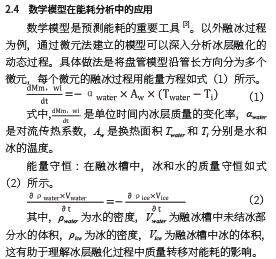 2.4 数学模型在能耗分析中的应用
数学模型是预测能耗的重要工具[3]。以外融冰过程
为例，通过微元法建立的模型可以深入分析冰层融化的
动态过程。具体做法是将盘管模型沿管长方向分为多个
微元，每个微元的融冰过程用能量方程如式（1）所示。
dMm，wi/dt = − α water × Aw × (Twater − Ti) (1)
式中，dMm，wi/dt 是单位时间内冰层质量的变化率，αwater
是对流传热系数，Aw 是换热面积 Twater 和 Ti 分别是水和
冰的温度。
能量守恒：在融冰槽中，冰和水的质量守恒如式
（2）所示。
∂ρwater×Vwater/∂t = − ∂ρice×Vice/∂t (2)
其中，ρwater 为水的密度，Vwater 为融冰槽中未结冰部
分水的体积，ρice 为冰的密度，Vice 为融冰槽中冰的体积，
这有助于理解冰层融化过程中质量转移对能耗的影响。